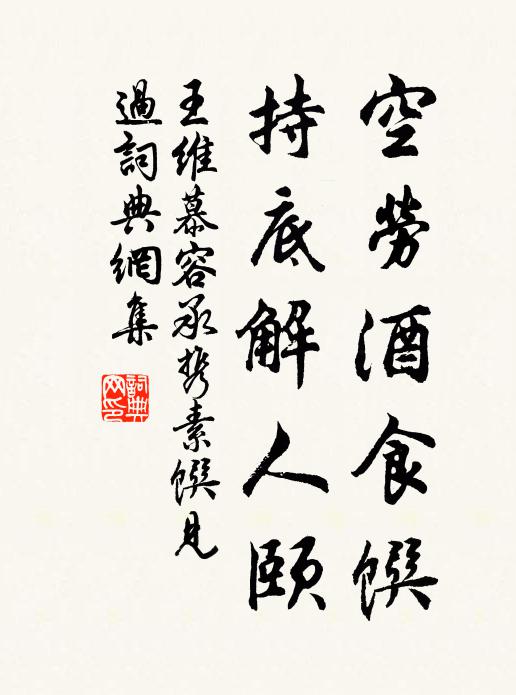 空勞酒食馔
持底解人頤
王維慕容承携素馔見
過詞典網集
詞典
网印